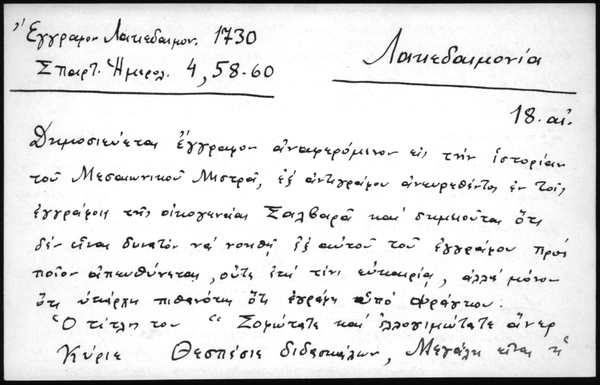 Ἔγγραφον Λακεδαιμον. 1730
Σπαρτ. Ἡμερολ. 4, 58-60
Λακεδαιμονία
18. αἰ.
Δημοσιεύεται ἔγγραφον ἀναφερόμενον εἰς τὴν ἱστορίαν
τοῦ Μεσαιωνικοῦ Μιστρᾶ, ἐξ ἀντιγράφου ἀνευρεθέντος ἐν τοῖς
ἐγγράφοις τῆς οἰκογενείας Σαλβαρᾶ καὶ σημειοῦται ὅτι
δὲν εἶναι δυνατὸν νὰ νοηθῇ ἐξ αὐτοῦ τοῦ ἐγγράφου πρὸς
ποῖον ἀπευθύνεται, οὔτε ἐπὶ τίνι εὐκαιρίᾳ, ἀλλὰ μόνον
ὅτι ὑπάρχει πιθανότης ὅτι ἐγράφη ὑπὸ Φράγκου.
Ὁ τίτλος του "Σοφώτατε καὶ ἐλλογιμώτατε ἄνερ
Κύριε Θεσπέσιε διδασκάλων, Μεγάλη εἶναι ἡ